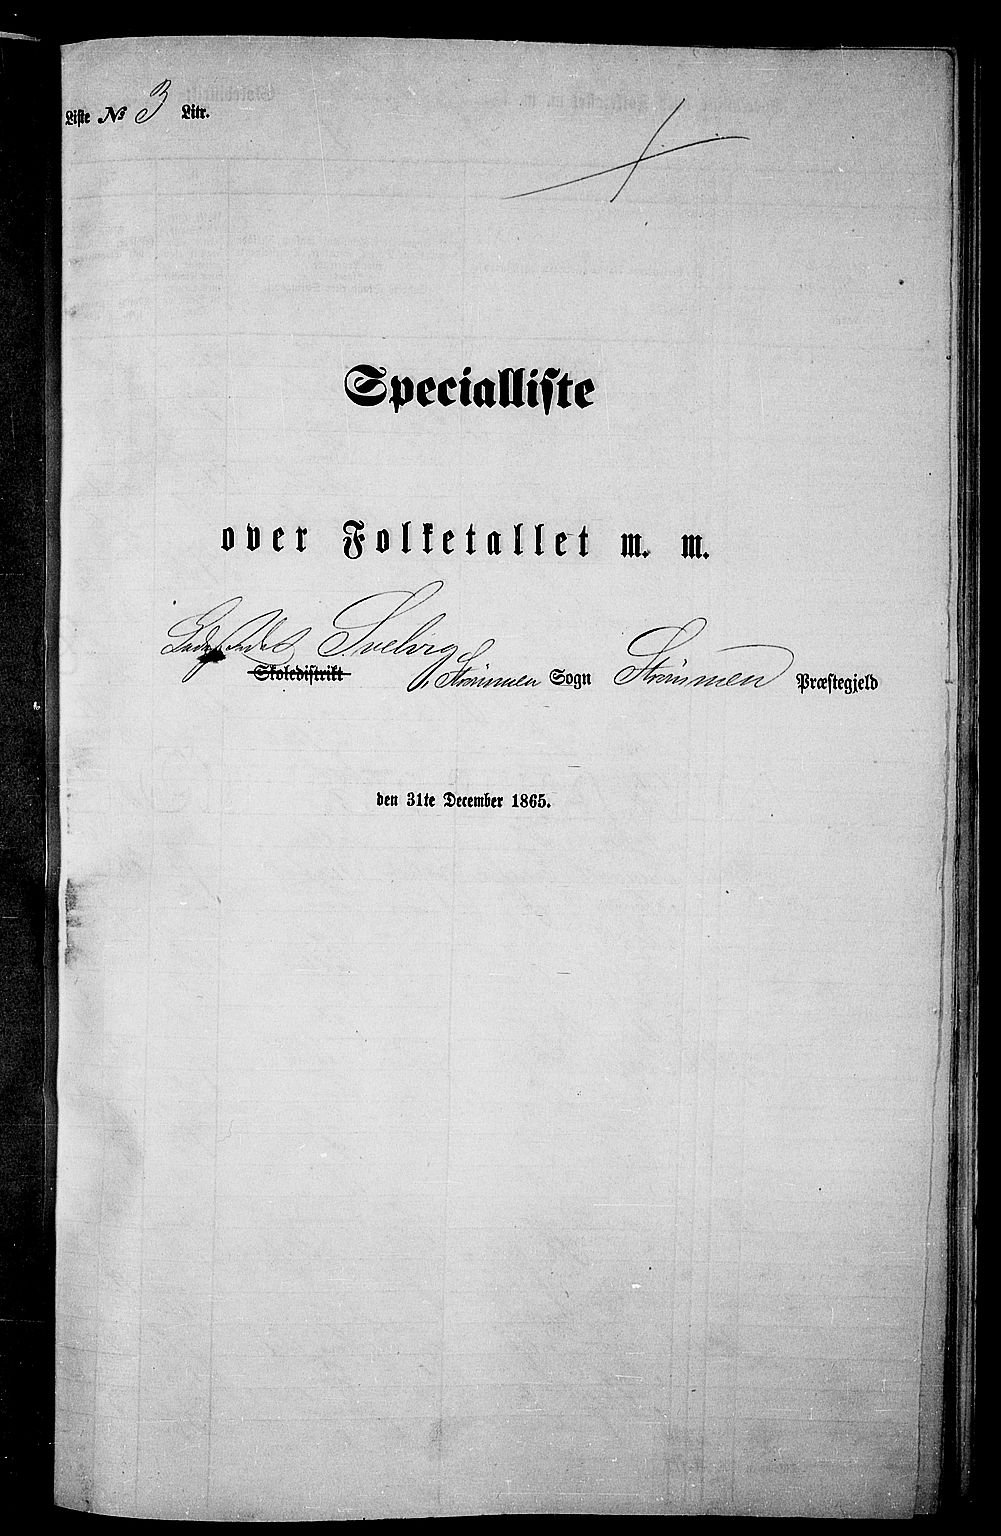 Liste № 3 Litr.
Specialliste
over Folketallet m. m.
Ladestedet Svelvig
Skoledistrikt Strømmen Sogn Strømmen Præstegjeld
den 31te December 1865.